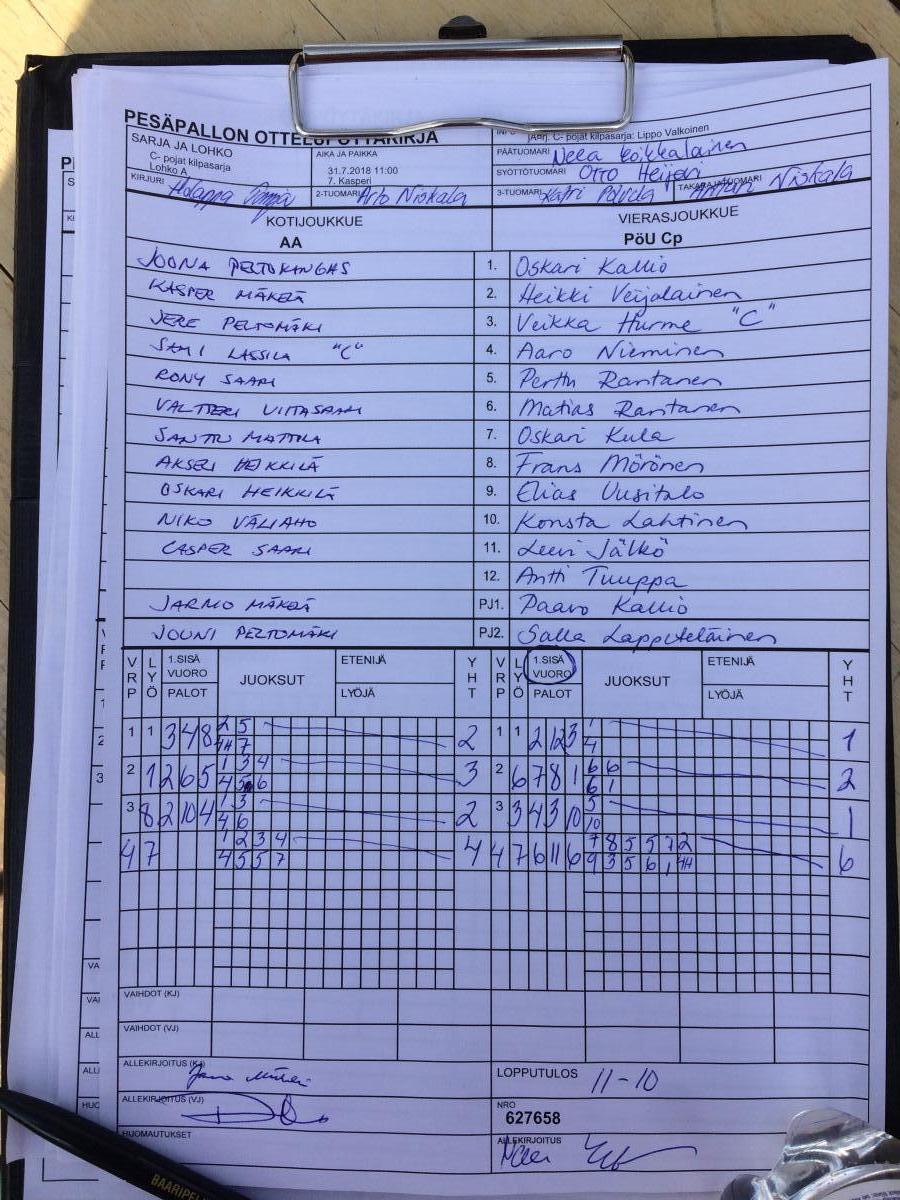 PESÄPALLON OTTELUPÖYTÄKIRJA
SARJA JA LOHKO
C- pojat kilpasarja
Lohko A
AIKA JA PAIKKA
31.7.2018 11:00
7. Kasperi
C- pojat kilpasarja: Lippo Valkoinen
PÄÄTUOMARI Neea Koikkalainen
SYÖTTÖTUOMARI Otto Heijari
KIRJURI
2-TUOMARI Arto Niskala
3-TUOMARI Katri
TAKARAJATUOMARI Niskala
KOTIJOUKKUE
AA
VIERASJOUKKUE
PöU Cp
JOONA PELTOKANGAS 1. Oskari Kallio
KASPER MÄKELÄ 2. Heikki Veijalainen
JERE PELTOMÄKI 3. Veikka Hurme "C"
SAMI LASSILA "C" 4. Aaro Nieminen
RONY SAARI 5. Perttu Rantanen
VALTTERI VIITASAARI 6. Matias Rantanen
SANTTU MATTILA 7. Oskari Kula
AKSELI HEIKKILÄ 8. Frans Mörönen
OSKARI HEIKKILÄ 9. Elias Uusitalo
NIKO VÄLIAHO 10. Konsta Lahtinen
CASPER SAARI 11. Leevi Jälkö
12. Antti Tuuppa
JARMO MÄKELÄ PJ1. Paavo Kallio
JOUNI PELTOMÄKI PJ2. Salla Lappeteläinen
VRP LYÖ 1.SISÄ VUORO PALOT JUOKSUT ETENIJÄ LYÖJÄ YHT VRP LYÖ 1.SISÄ VUORO PALOT JUOKSUT ETENIJÄ LYÖJÄ YHT
1 1 3 4 8 2 5 2 1 1 2 12 3 1 1
4H 7 4
2 1 2 6 5 1 3 4 3 2 6 7 8 1 6 6 2
4 5 6 6 1
3 8 2 10 4 1 3 2 3 3 4 3 10 5 1
4 6 10
4 7 1 2 3 4 4 4 7 6 11 6 7 8 5 5 7 2 6
4 5 5 7 9 3 5 6 1 4H
VAIHDOT (KJ)
VAIHDOT (VJ)
ALLEKIRJOITUS (KJ)
LOPPUTULOS 11-10
ALLEKIRJOITUS (VJ)
NRO
627658
HUOMAUTUKSET
ALLEKIRJOITUS